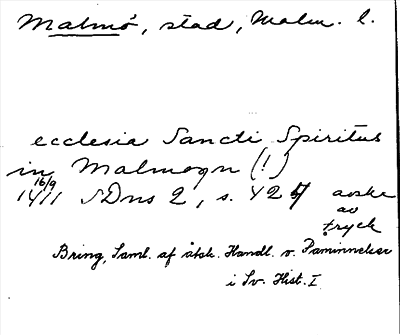 Malmö, stad, Malm. l.
ecclesia Sancti Spiritus
in Malmogn (!)
16/9
1411 SDns 2, s. 427 avskr.
av
tryck
Bring, Saml. af åtsk. Handl. o. Påminnelser
i Sv. Hist. I